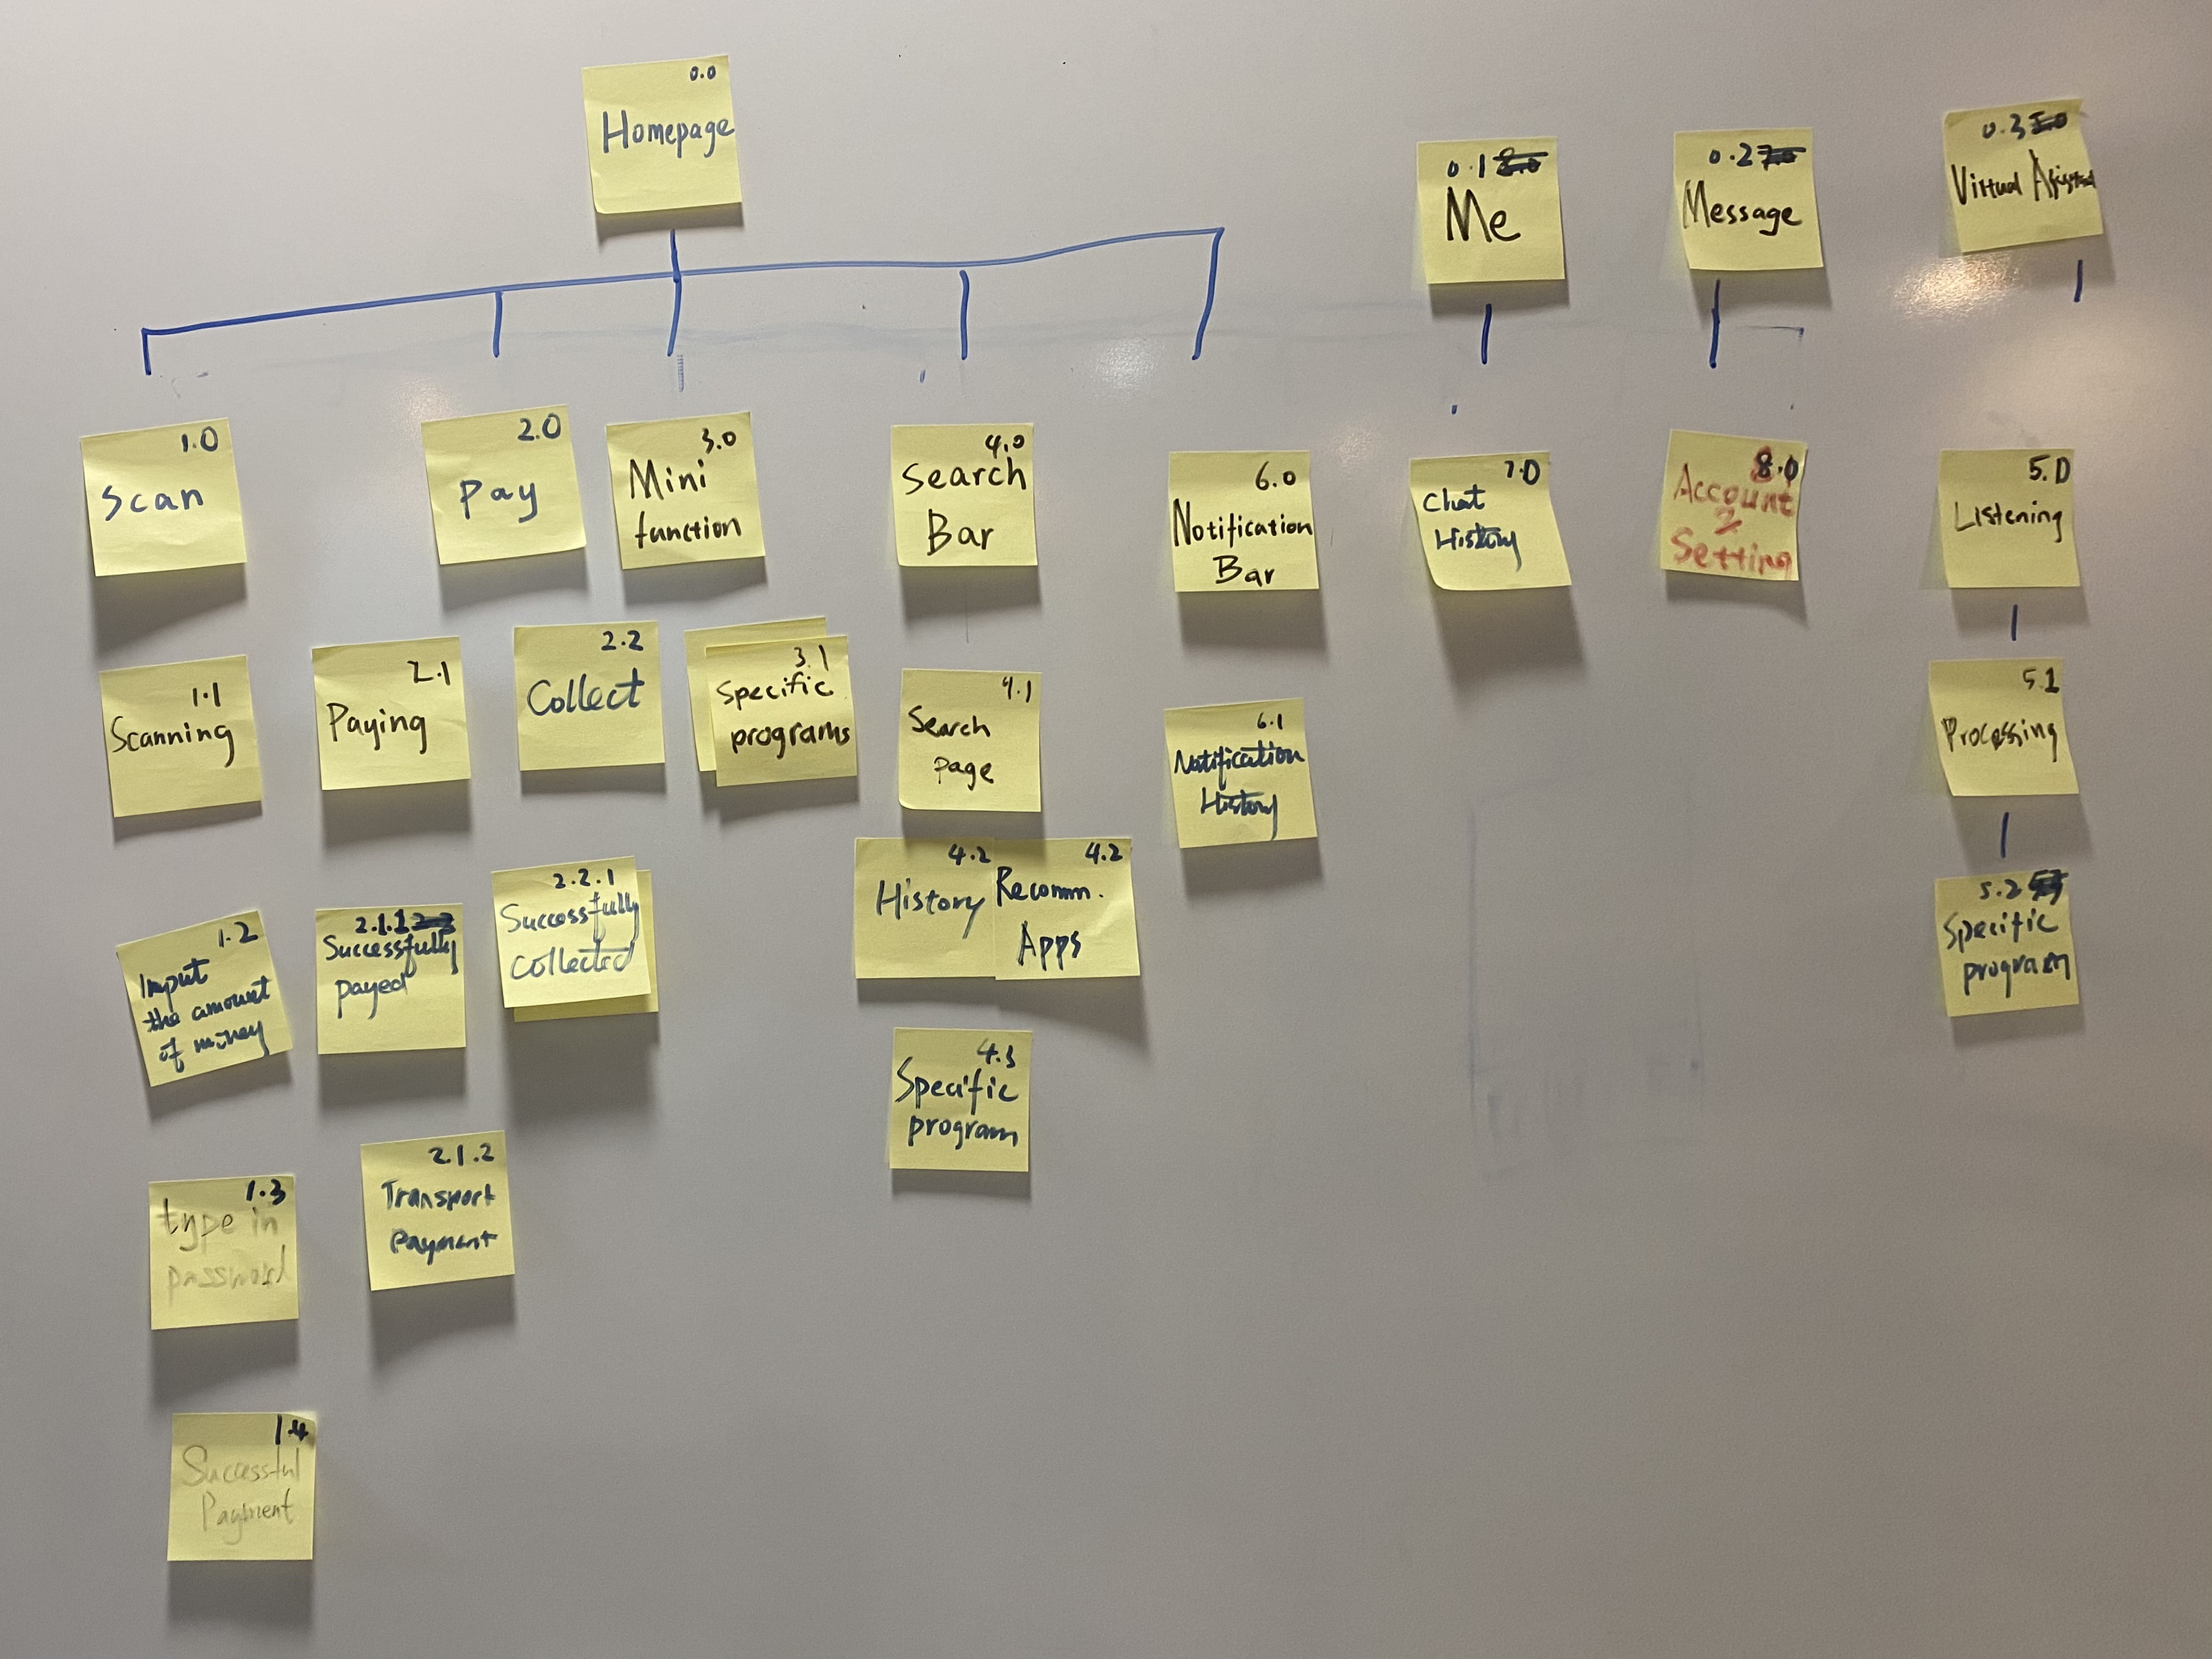 0.0
Homepage
0.1
Me
0.2
Message
0.3
Virtual
1.0
Scan
2.0
Pay
3.0
Mini
function
4.0
Search
Bar
6.0
Notification
Bar
7.0
Chat
History
8.0
Account
Setting
5.0
Listening
1.1
Scanning
2.1
Paying
2.2
Collect
3.1
Specific
programs
4.1
Search
page
6.1
Notification
History
5.1
Processing
1.2
Input
the amount
of money
2.1.1
Successfully
payed
2.2.1
Successfully
collected
4.2
History
4.2
Recomm.
Apps
5.2
Specific
program
4.3
Specific
program
1.3
type in
password
2.1.2
Transport
Payment
1.4
Successful
Payment